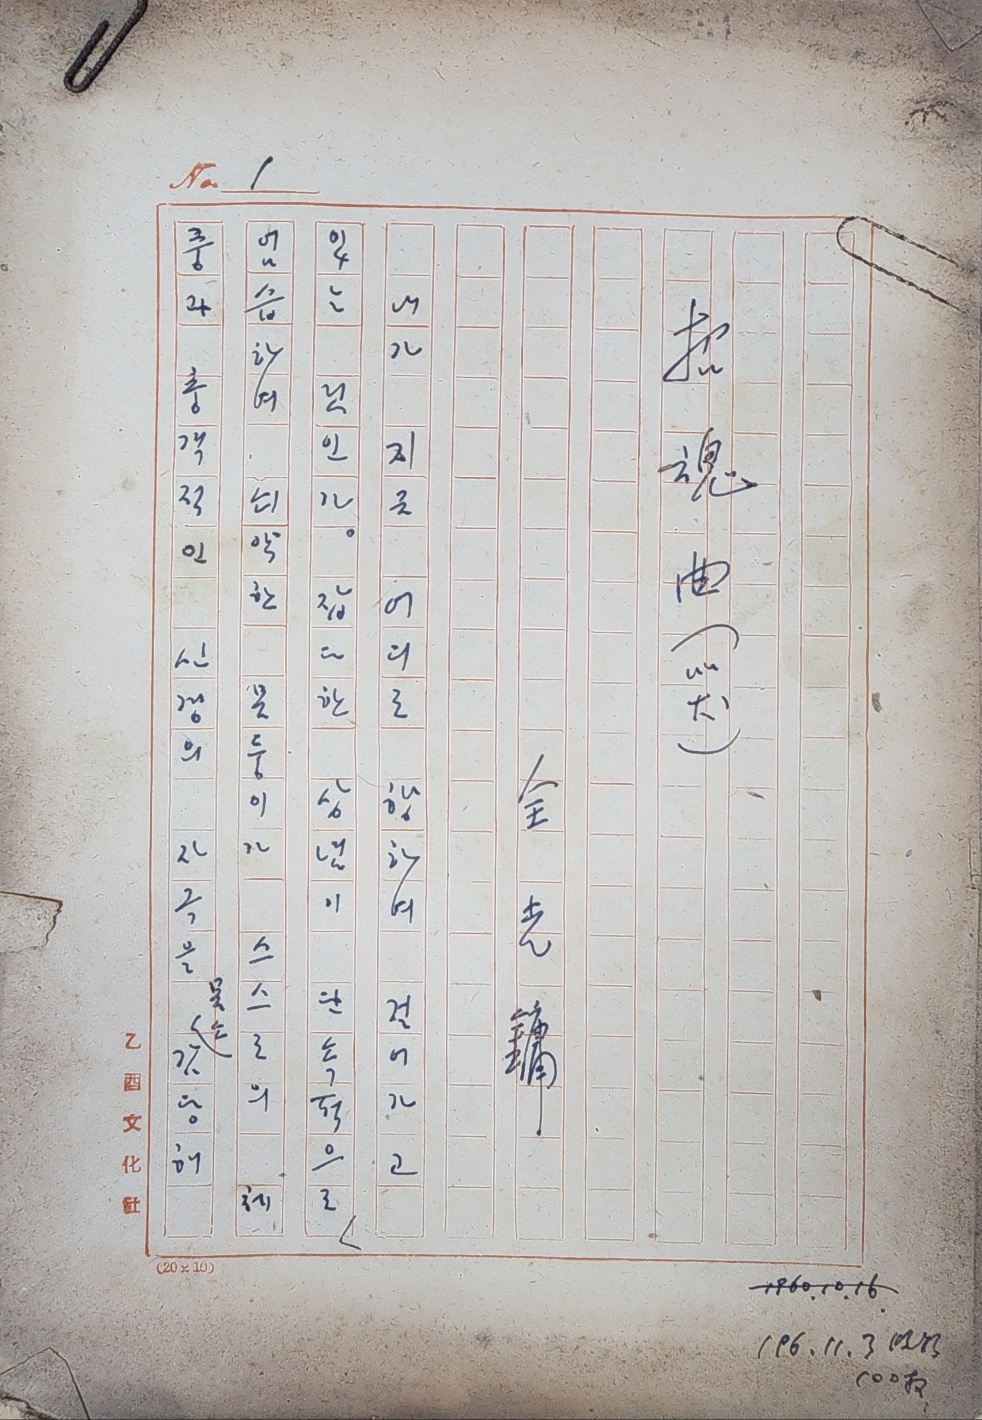 No. 1
招魂曲(哭)
全光鏞
내가 지금 어디로 향하여 걸어가고
있는 것인가. 잡다한 상념이 단속적으로
엄습하여 쇠약한 몸둥이가 스스로의 체
중과 충격적인 신경의 자극을 감당해
乙酉文化社
(20×10)
1960.10.16.
196.11.3
100枚